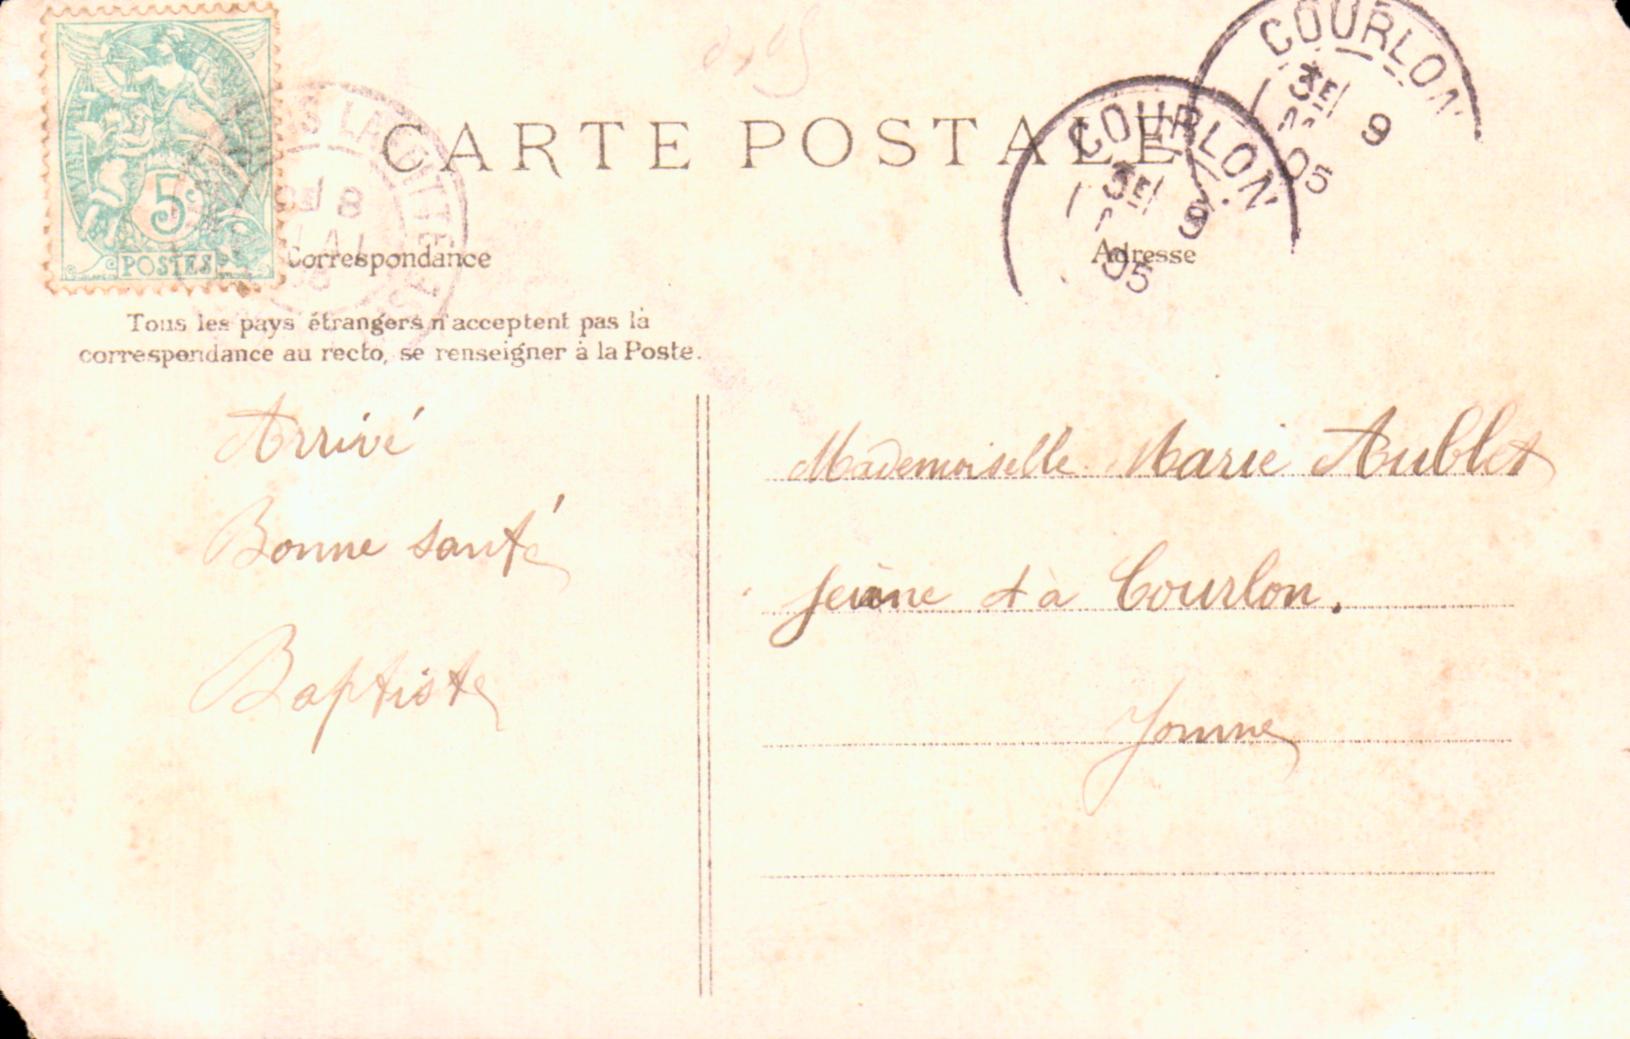 CARTE POSTALE
COURLON
3E
9
05
COURLON
3E
9
05
5c
POSTES
Correspondance
Adresse
Tous les pays étrangers n'acceptent pas la
correspondance au recto, se renseigner à la Poste.
Arrivé
Bonne santé
Baptiste
Mademoiselle Marie Aublet
jeune à Courlon.
Yonne